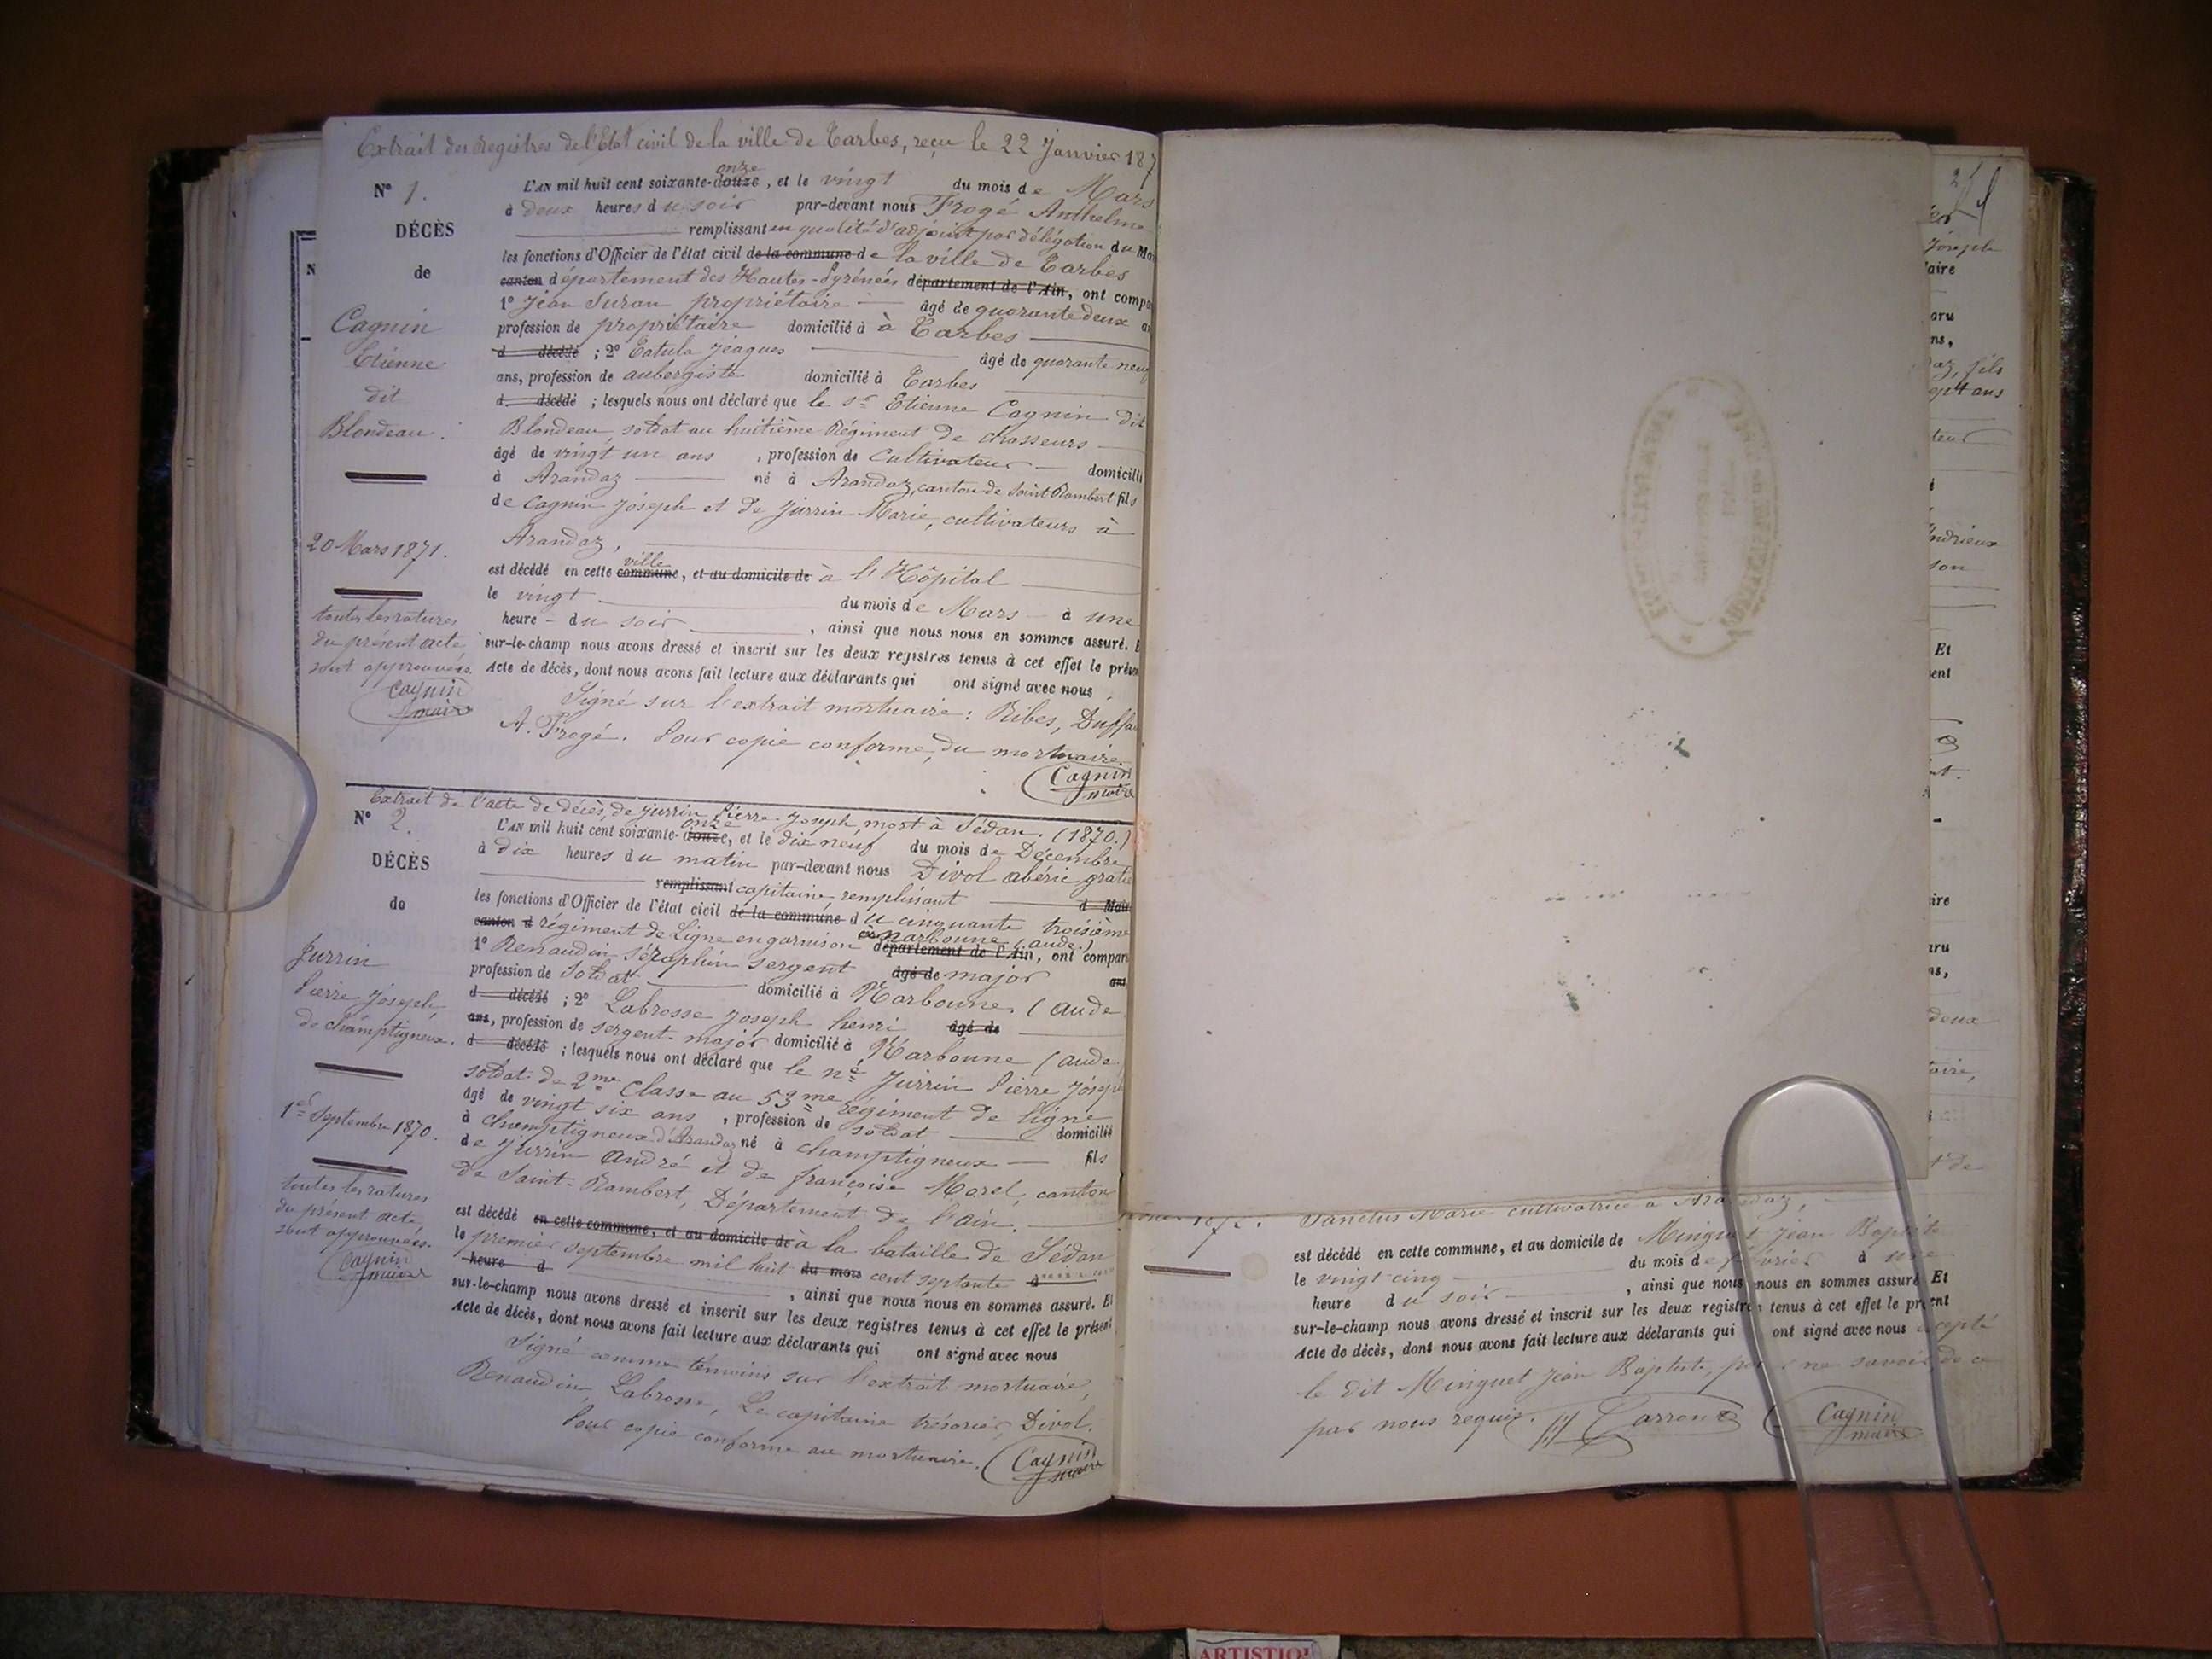 Extrait des Registres de l'Etat civil de la ville de Tarbes, reçu le 22 Janvier 187
N° 1.
DÉCÈS
de
Cagnin
Etienne
dit
Blondeau.
20 Mars 1871.
toutes les ratures
du présent acte,
sont approuvées.
Cagnin
maire
L'AN mil huit cent soixante-douze onze, et le vingt du mois de Mars
à deux heures du soir par-devant nous Trogé Anthelme
remplissant en qualité d'adjoint par délégation du Ma
les fonctions d'Officier de l'état civil de la commune de la ville de Tarbes
canton département des Hautes-Pyrénées département de l'Ain, ont compa
1° Jean Suran propriétaire âgé de quarante deux an
profession de propriétaire domicilié à à Tarbes
d décédé ; 2° Catula Jeaques âgé de quarante neuf
ans, profession de aubergiste domicilié à Tarbes
d décédé ; lesquels nous ont déclaré que le sr Etienne Cagnin dit
Blondeau, soldat au huitième Régiment de chasseurs
âgé de vingt un ans , profession de Cultivateur domicilié
à Arandaz né à Arandaz, canton de Saint Rambert fils
de Cagnin Joseph et de Jurrin Marie, cultivateurs à
Arandaz,
est décédé en cette commune ville, et au domicile de à l'Hôpital
le vingt du mois de Mars à une
heure du soir , ainsi que nous nous en sommes assuré. E
sur-le-champ nous avons dressé et inscrit sur les deux registres tenus à cet effet le présen
Acte de décès, dont nous avons fait lecture aux déclarants qui ont signé avec nous
Signé sur l'extrait mortuaire : Ribes, Duffau
A. Trogé. Pour copie conforme, du mortuaire.
Cagnin
maire
Extrait de l'acte de décès, de Jurrin Pierre Joseph, mort à Sédan. (1870.)
N° 2.
DÉCÈS
de
Jurrin
Pierre Joseph,
de champtigneux.
1er Septembre 1870.
toutes les ratures
du présent acte,
sont approuvées.
Cagnin
maire
L'AN mil huit cent soixante-douze onze, et le dix neuf du mois de Décembre
à dix heures du matin par-devant nous Divol abéric grate
remplissant capitaine remplissant d Mair
les fonctions d'Officier de l'état civil de la commune du cinquante troisième
canton d régiment de Ligne en garnison à Narbonne (aude) département de l'Ain, ont compar
1° Renaudin Séraphin sergent âgé de major ans
profession de Soldat domicilié à Narbonne (aude
d décédé ; 2° Labrosse Joseph henri âgé de
ans, profession de sergent-major domicilié à Narbonne (aude
d décédé ; lesquels nous ont déclaré que le né Jurrin Pierre Joseph
soldat de 2me Classe au 53me régiment de ligne
âgé de vingt six ans , profession de soldat domicilié
à champtigneux d'Arandaz né à champtigneux fils
de Jurrin André et de françoise Morel, canton
de Saint-Rambert, Département de l'ain.
est décédé en cette commune, et au domicile de à la bataille de Sédan
le premier septembre mil huit du mois cent septante à
heure d , ainsi que nous nous en sommes assuré. Et
sur-le-champ nous avons dressé et inscrit sur les deux registres tenus à cet effet le présent
Acte de décès, dont nous avons fait lecture aux déclarants qui ont signé avec nous
Signé comme témoins sur l'extrait mortuaire,
Renaudin, Labrosse, Le capitaine trésorier, Divol.
Pour copie conforme au mortuaire.
Cagnin
maire
Joseph
aire
aru
ns,
az, fils
sept ans
teur
Andrieux
son
Et
ent
ire
aru
ns,
deux
aire,
t de
Sanctus Marie cultivatrice à Arandaz,
est décédé en cette commune, et au domicile de Minguet Jean Baptiste
le vingt-cinq du mois de février à une
heure du soir , ainsi que nous nous en sommes assuré Et
sur-le-champ nous avons dressé et inscrit sur les deux registres tenus à cet effet le présent
Acte de décès, dont nous avons fait lecture aux déclarants qui ont signé avec nous excepté
le dit Minguet Jean Baptiste, pour ne savoir de ce
par nous requis. Carron
Cagnin
maire
ARTISTIQU